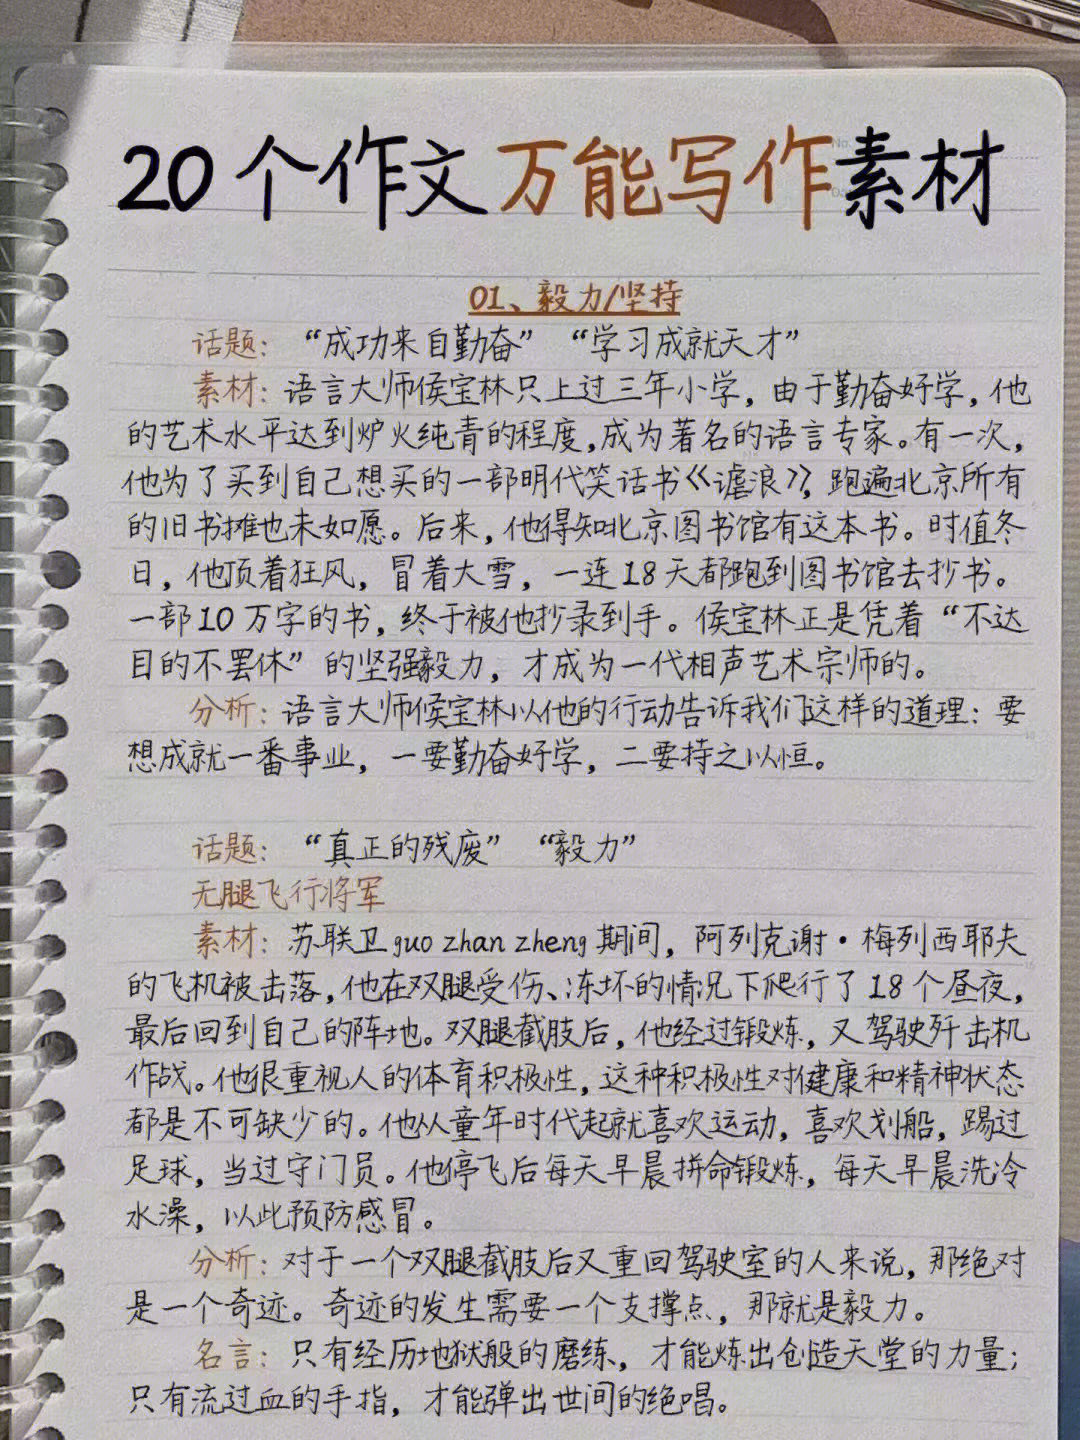 20个作文万能写作素材
01、毅力/坚持
话题：“成功来自勤奋”“学习成就天才”
素材：语言大师侯宝林只上过三年小学，由于勤奋好学，他
的艺术水平达到炉火纯青的程度，成为著名的语言专家。有一次，
他为了买到自己想买的一部明代笑话书《谑浪》，跑遍北京所有
的旧书摊也未如愿。后来，他得知北京图书馆有这本书。时值冬
日，他顶着狂风，冒着大雪，一连18天都跑到图书馆去抄书。
一部10万字的书，终于被他抄录到手。侯宝林正是凭着“不达
目的不罢休”的坚强毅力，才成为一代相声艺术宗师的。
分析：语言大师侯宝林以他的行动告诉我们这样的道理：要
想成就一番事业，一要勤奋好学，二要持之以恒。
话题：“真正的残废”“毅力”
无腿飞行将军
素材：苏联卫guo zhan zheng期间，阿列克谢·梅列西耶夫
的飞机被击落，他在双腿受伤、冻坏的情况下爬行了18个昼夜，
最后回到自己的阵地。双腿截肢后，他经过锻炼，又驾驶歼击机
作战。他很重视人的体育积极性，这种积极性对健康和精神状态
都是不可缺少的。他从童年时代起就喜欢运动，喜欢划船，踢过
足球，当过守门员。他停飞后每天早晨拼命锻炼，每天早晨洗冷
水澡，以此预防感冒。
分析：对于一个双腿截肢后又重回驾驶室的人来说，那绝对
是一个奇迹。奇迹的发生需要一个支撑点，那就是毅力。
名言：只有经历地狱般的磨练，才能炼出创造天堂的力量；
只有流过血的手指，才能弹出世间的绝唱。